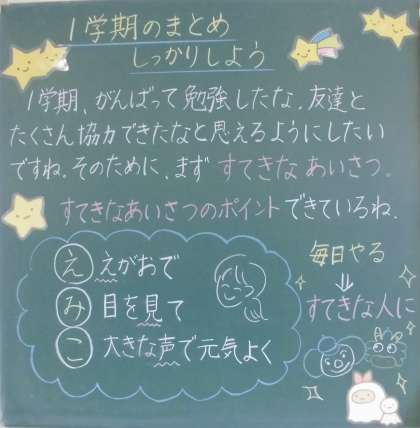 1学期のまとめ
しっかりしよう
1学期、がんばって勉強したな。友達と
たくさん協力できたなと思えるようにしたい
ですね。そのために、まず すてきなあいさつ。
すてきなあいさつのポイントできているね。
え えがおで
み 目を見て
こ 大きな声で元気よく
毎日やる
⇓
すてきな人に